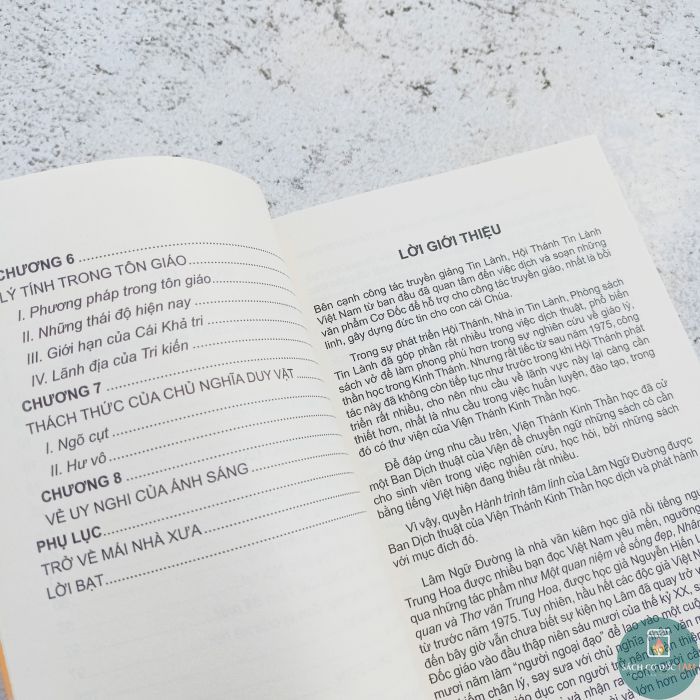 CHƯƠNG 6
LÝ TÍNH TRONG TÔN GIÁO
I. Phương pháp trong tôn giáo
II. Những thái độ hiện nay
III. Giới hạn của Cái Khả tri
IV. Lãnh địa của Tri kiến
CHƯƠNG 7
THÁCH THỨC CỦA CHỦ NGHĨA DUY VẬT
I. Ngõ cụt
II. Hư vô
CHƯƠNG 8
VẺ UY NGHI CỦA ÁNH SÁNG
PHỤ LỤC
TRỞ VỀ MÁI NHÀ XƯA
LỜI BẠT
LỜI GIỚI THIỆU
Bên cạnh công tác truyền giảng Tin Lành, Hội Thánh Tin Lành
Việt Nam từ ban đầu đã quan tâm đến việc dịch và soạn những
văn phẩm Cơ Đốc để hỗ trợ cho công tác truyền giáo, nhất là bồi
linh, gây dựng đức tin cho con cái Chúa.
Trong sự phát triển Hội Thánh, Nhà in Tin Lành, Phòng sách
Tin Lành đã góp phần rất nhiều trong việc dịch thuật, phổ biến
sách vở để làm phong phú hơn trong sự nghiên cứu về giáo lý,
thần học trong Kinh Thánh. Nhưng rất tiếc từ sau năm 1975, công
tác này đã không còn tiếp tục như trước trong khi Hội Thánh phát
triển rất nhiều, cho nên nhu cầu về lãnh vực này lại càng cần
thiết hơn, nhất là nhu cầu trong việc huấn luyện, đào tạo, trong
đó có thư viện của Viện Thánh Kinh Thần học.
Để đáp ứng nhu cầu trên, Viện Thánh Kinh Thần học đã cử
một Ban Dịch thuật của Viện để chuyển ngữ những sách có cần
cho sinh viên trong việc nghiên cứu, học hỏi, bởi những sách
bằng tiếng Việt hiện đang thiếu rất nhiều.
Vì vậy, quyển Hành trình tâm linh của Lâm Ngữ Đường được
Ban Dịch thuật của Viện Thánh Kinh Thần học dịch và phát hành
với mục đích đó.
Lâm Ngữ Đường là nhà văn kiêm học giả nổi tiếng người
Trung Hoa được nhiều bạn đọc Việt Nam yêu mến, ngưỡng
qua những tác phẩm như Một quan niệm về sống đẹp, Nhân
quan và Thơ văn Trung Hoa, được học giả Nguyễn Hiến L
từ trước năm 1975. Tuy nhiên, hầu hết các độc giả Việt N
đến bây giờ vẫn chưa biết sự kiện họ Lâm đã quay trở v
Đốc giáo vào đầu thập niên sáu mươi của thế kỷ XX, s
mươi năm làm "người ngoại đạo" để lao vào một cuộ
kiếm chân lý, say sưa với chủ nghĩa
SÁCH CƠ ĐỐC LAM